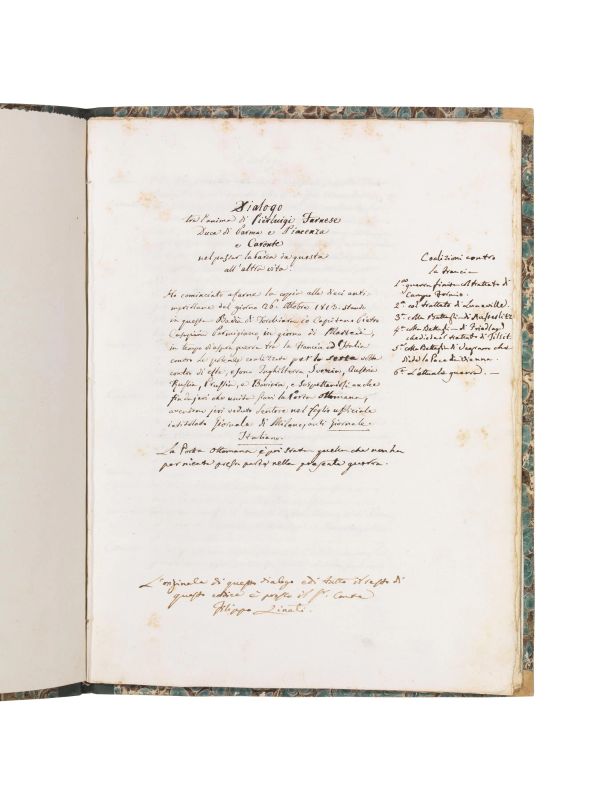 Dialogo
tra l'anima di Pierluigi Farnese
Duca di Parma e Piacenza
e Caronte
nel passar la barca in questa
all'altra vita.
Ho cominciato a farne la copia alle dieci anti
meridiane del giorno 26. Ottobre 1813. stando
in questa di Torchiara, io Capitano Pietro
Parmigiano, in giorno di Martedì,
in tempo d'aspra guerra tra la Francia ed Italia
contro le potenze coalizzate per la sesta volta
contro di esse, e sono Inghilterra Svezia, Austria
Russia, Prussia, e Baviera, e sospettandosi anche
fin da jeri che unita siavi la Porta Ottomana,
avendone jeri veduto sentore nel foglio uffiziale
intitolato Giornale di Milano, anti Giornale
Italiano.
La Porta Ottomana è poi stata quella che non ha
per niente preso parte nella presente guerra.
L'originale di questo dialogo e di tutto il resto di
questo codice è presso il Sr. Conte
Filippo Linati.
Coalizioni contro
la Francia
1ma guerra finita col trattato di
Campo Formio.
2a col trattato di Luneville.
3a colla Battaglia di Austerlitz
4a colla Battaglia di Friedland
che diede il trattato di Tilsit.
5a colla Battaglia di Wagram che
diede la Pace di Vienna.
6a L'attuale guerra. —